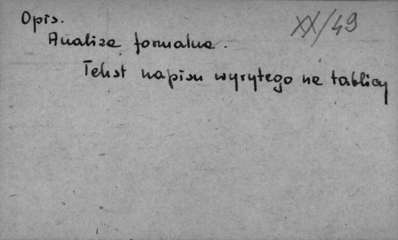 Opis.
XX/49
Analiza formalna.
Tekst napisu wyrytego na tablicy